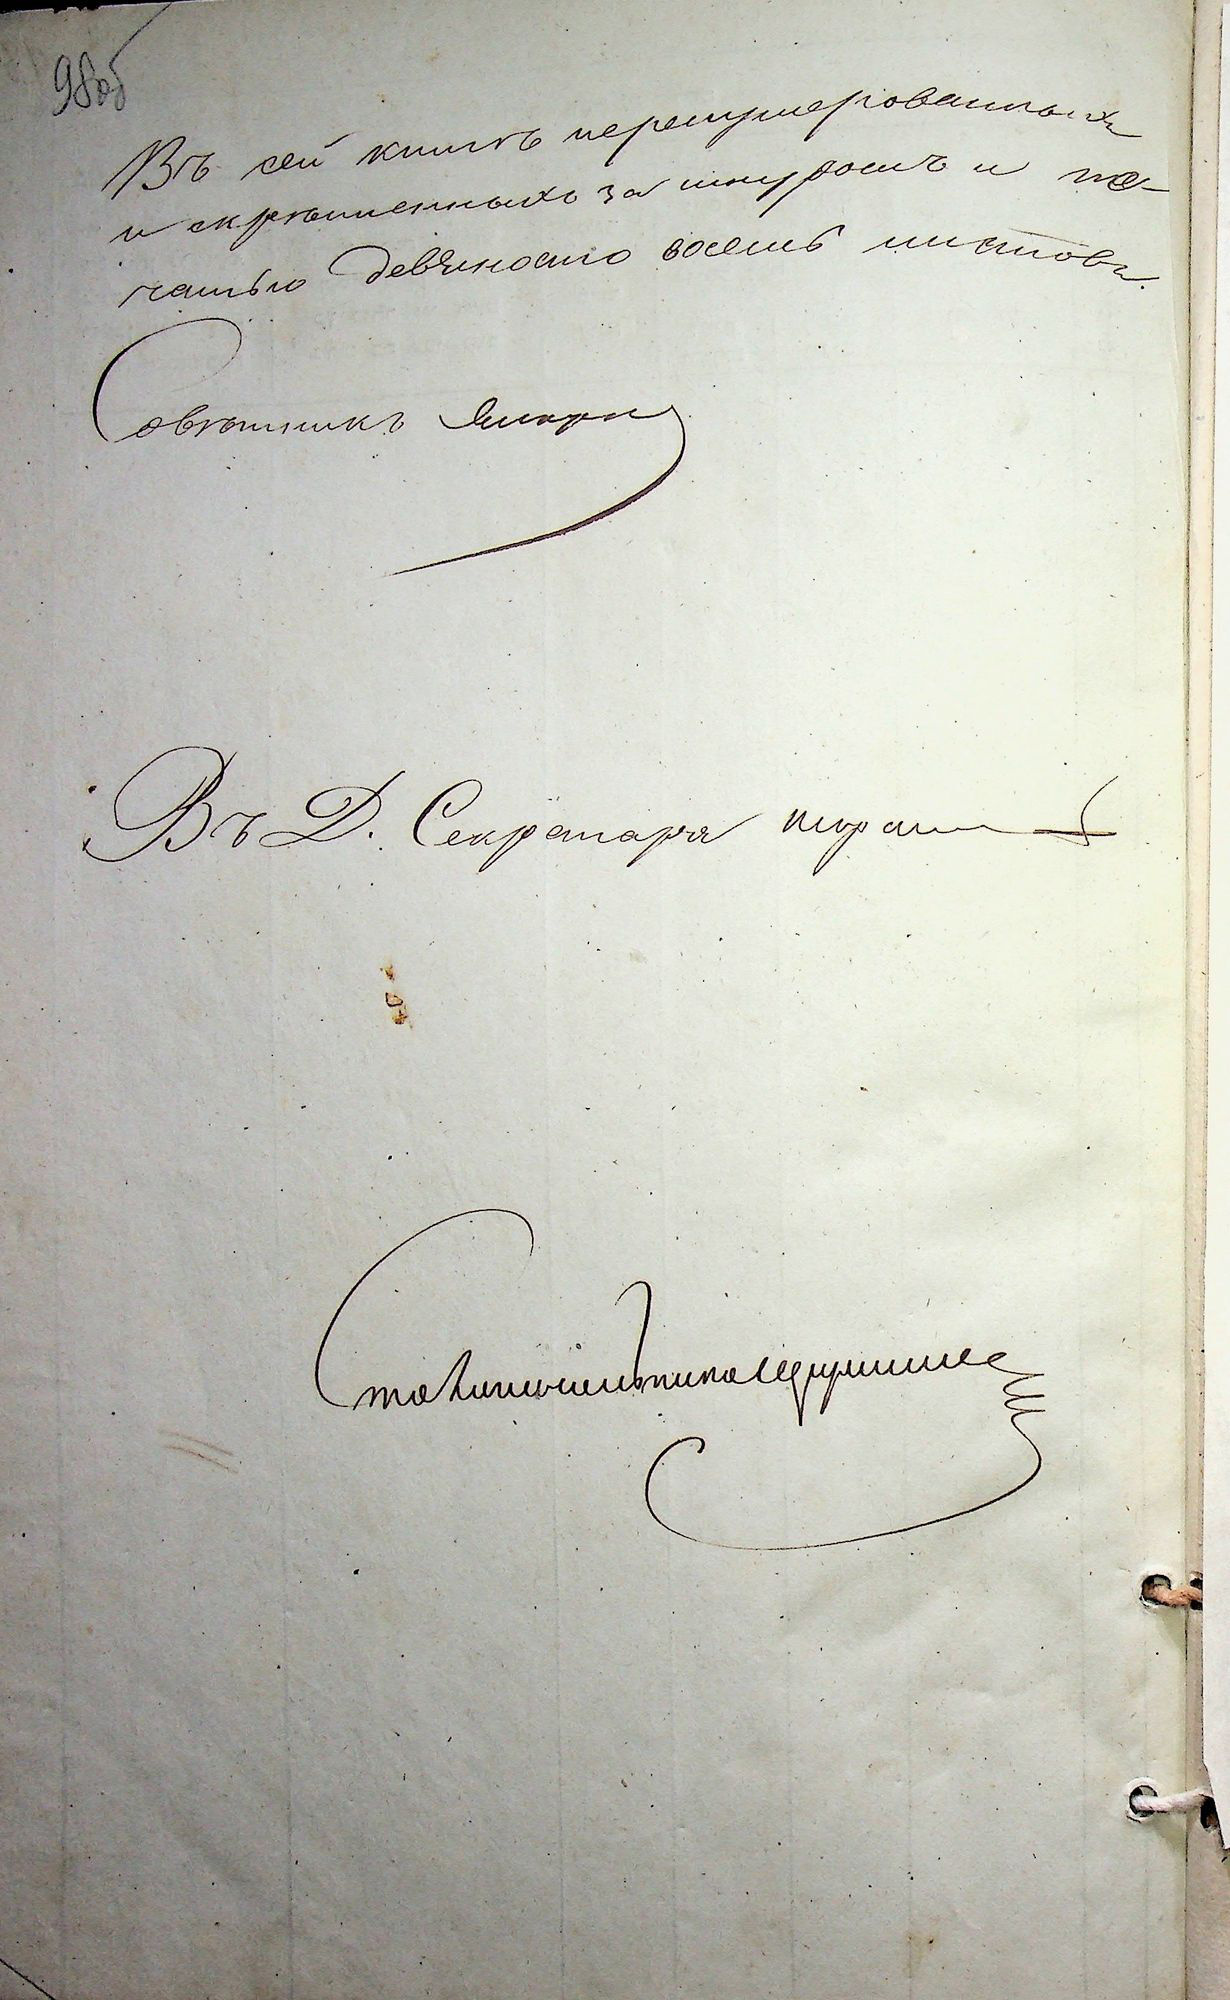 98об
Въ сей книгѣ перенумерованныхъ
и скрѣпленныхъ за шнуромъ и пе-
чатью девяносто восемь листовъ.
Совѣтникъ
Въ Д. Секретаря
Столоначальникъ